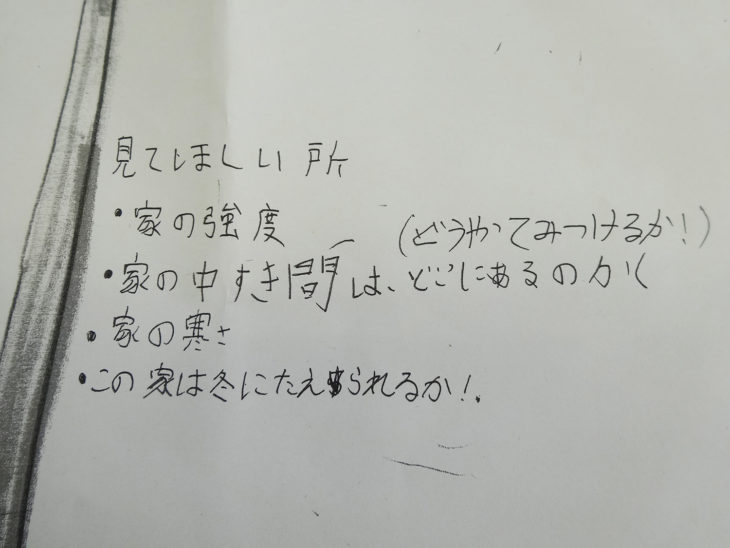 見てほしい所
・家の強度
(どうやてみつけるか!)
・家の中すき間は、どこにあるのか
・家の寒さ
・この家は冬にたえられるか!.